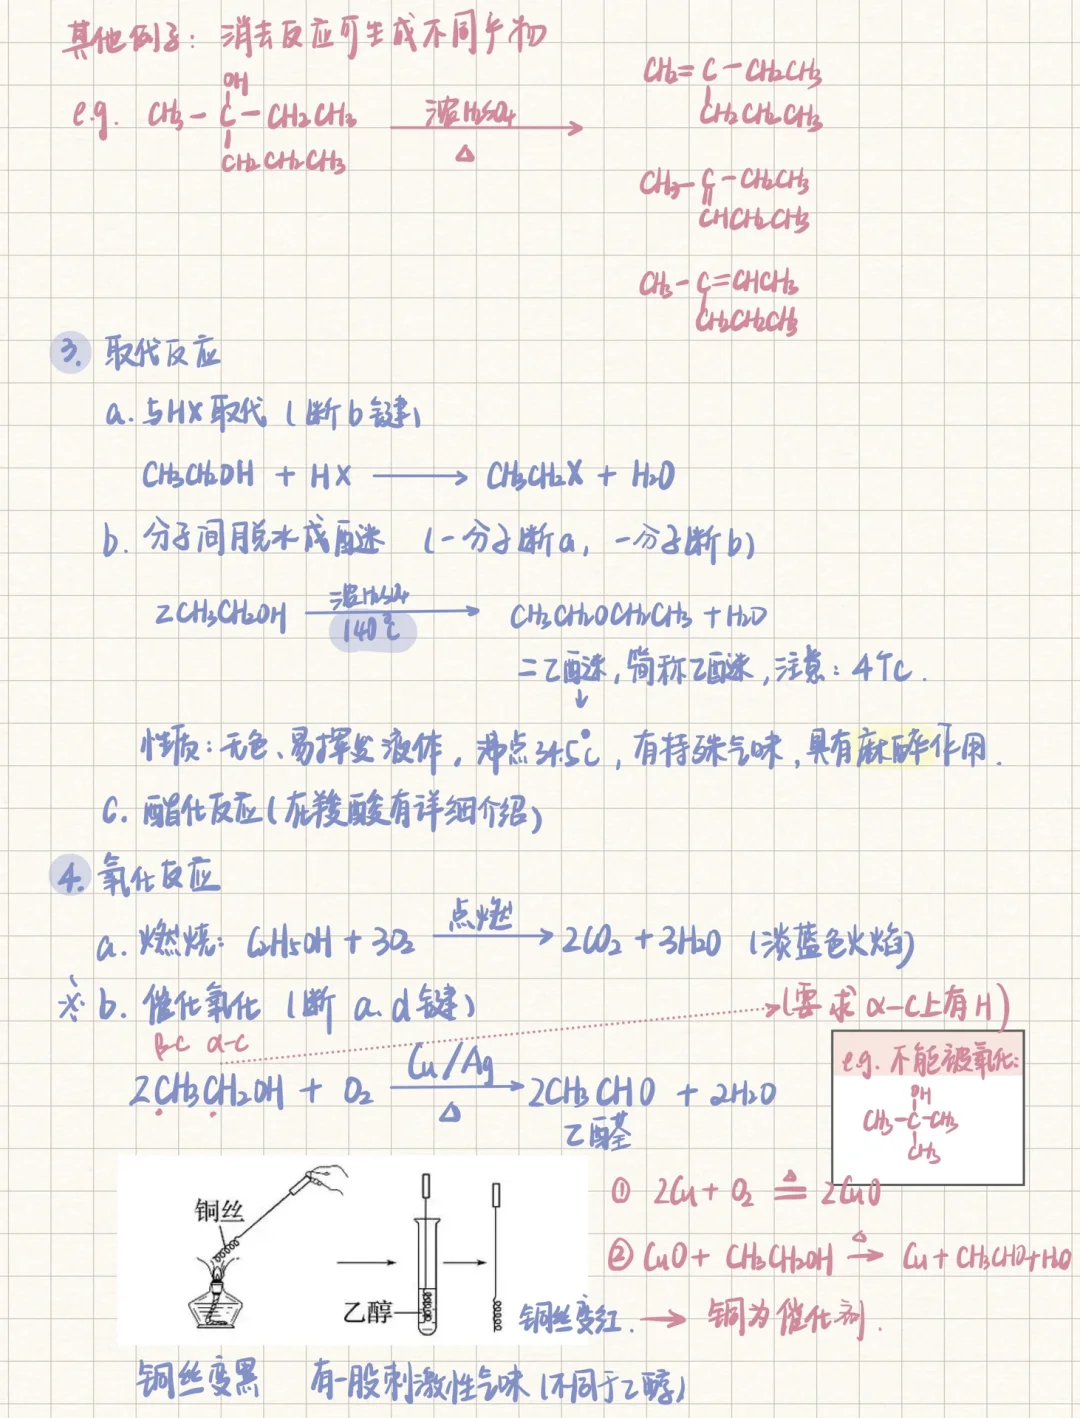 其他例子：消去反应可生成不同产物
e.g. CH3-C(OH)-CH2CH3 浓H2SO4 △ CH2=C-CH2CH3
CH2CH2CH3 CH2CH2CH3
CH3-C-CH2CH3
CHCH2CH3
CH3-C=CHCH3
CH2CH2CH3
3. 取代反应
a. 与HX取代（断b键）
CH3CH2OH + HX → CH3CH2X + H2O
b. 分子间脱水成醚 （一分子断a，一分子断b）
2CH3CH2OH 浓H2SO4 140℃ → CH3CH2OCH2CH3 + H2O
二乙醚，简称乙醚，注意：4个C.
↓
性质：无色、易挥发液体，沸点34.5℃，有特殊气味，具有麻醉作用.
C. 酯化反应（在羧酸有详细介绍）
4. 氧化反应
a. 燃烧：C2H5OH + 3O2 点燃 → 2CO2 + 3H2O （淡蓝色火焰）
※ b. 催化氧化（断a.d键） →（要求α-C上有H）
β-C α-C
2CH3CH2OH + O2 Cu/Ag △ → 2CH3CHO + 2H2O
乙醛
e.g. 不能被氧化：
OH
CH3-C-CH3
CH3
① 2Cu + O2 △ = 2CuO
② CuO + CH3CH2OH △ → Cu + CH3CHO + H2O
铜丝
乙醇
铜丝变红. → 铜为催化剂.
铜丝变黑 有一股刺激性气味（不同于乙醇）